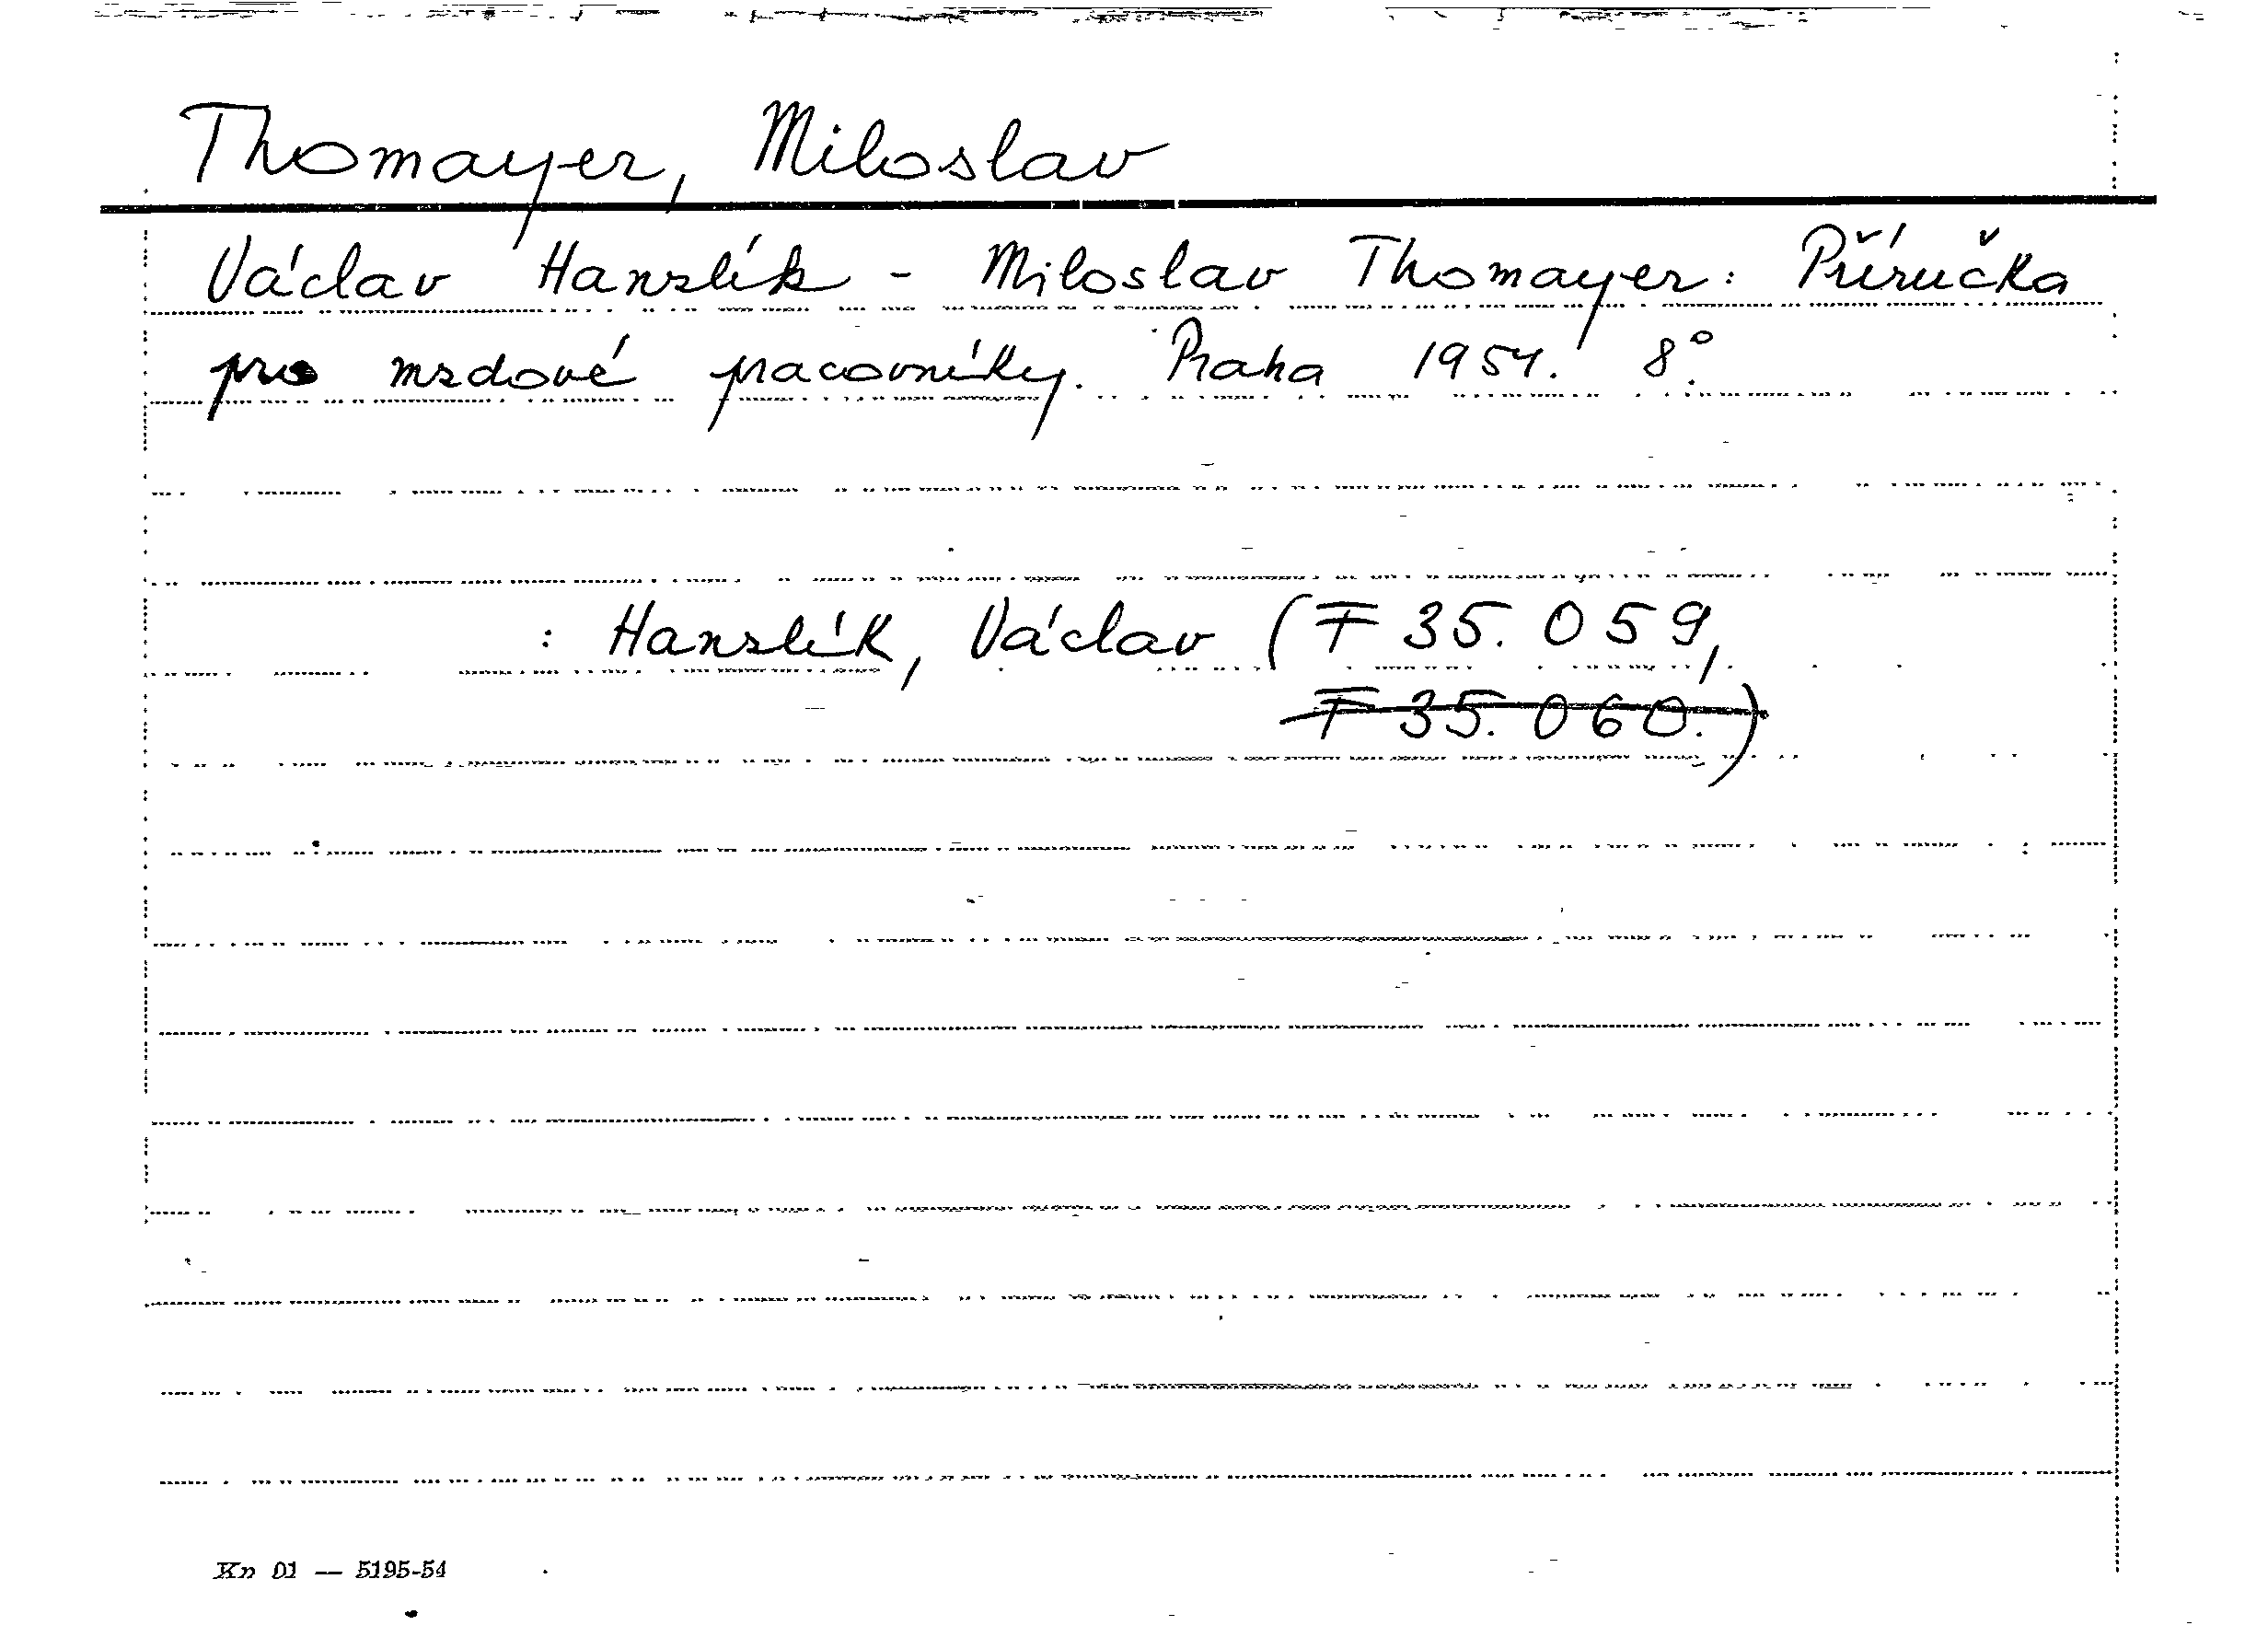 Thomayer, Miloslav
Václav Hanzlík - Miloslav Thomayer: Příručka
pro mzdové pracovníky. Praha 1954. 8°.
: Hanzlík, Václav (F 35.059,
F 35.060.)
Kn 01 — 5195-54